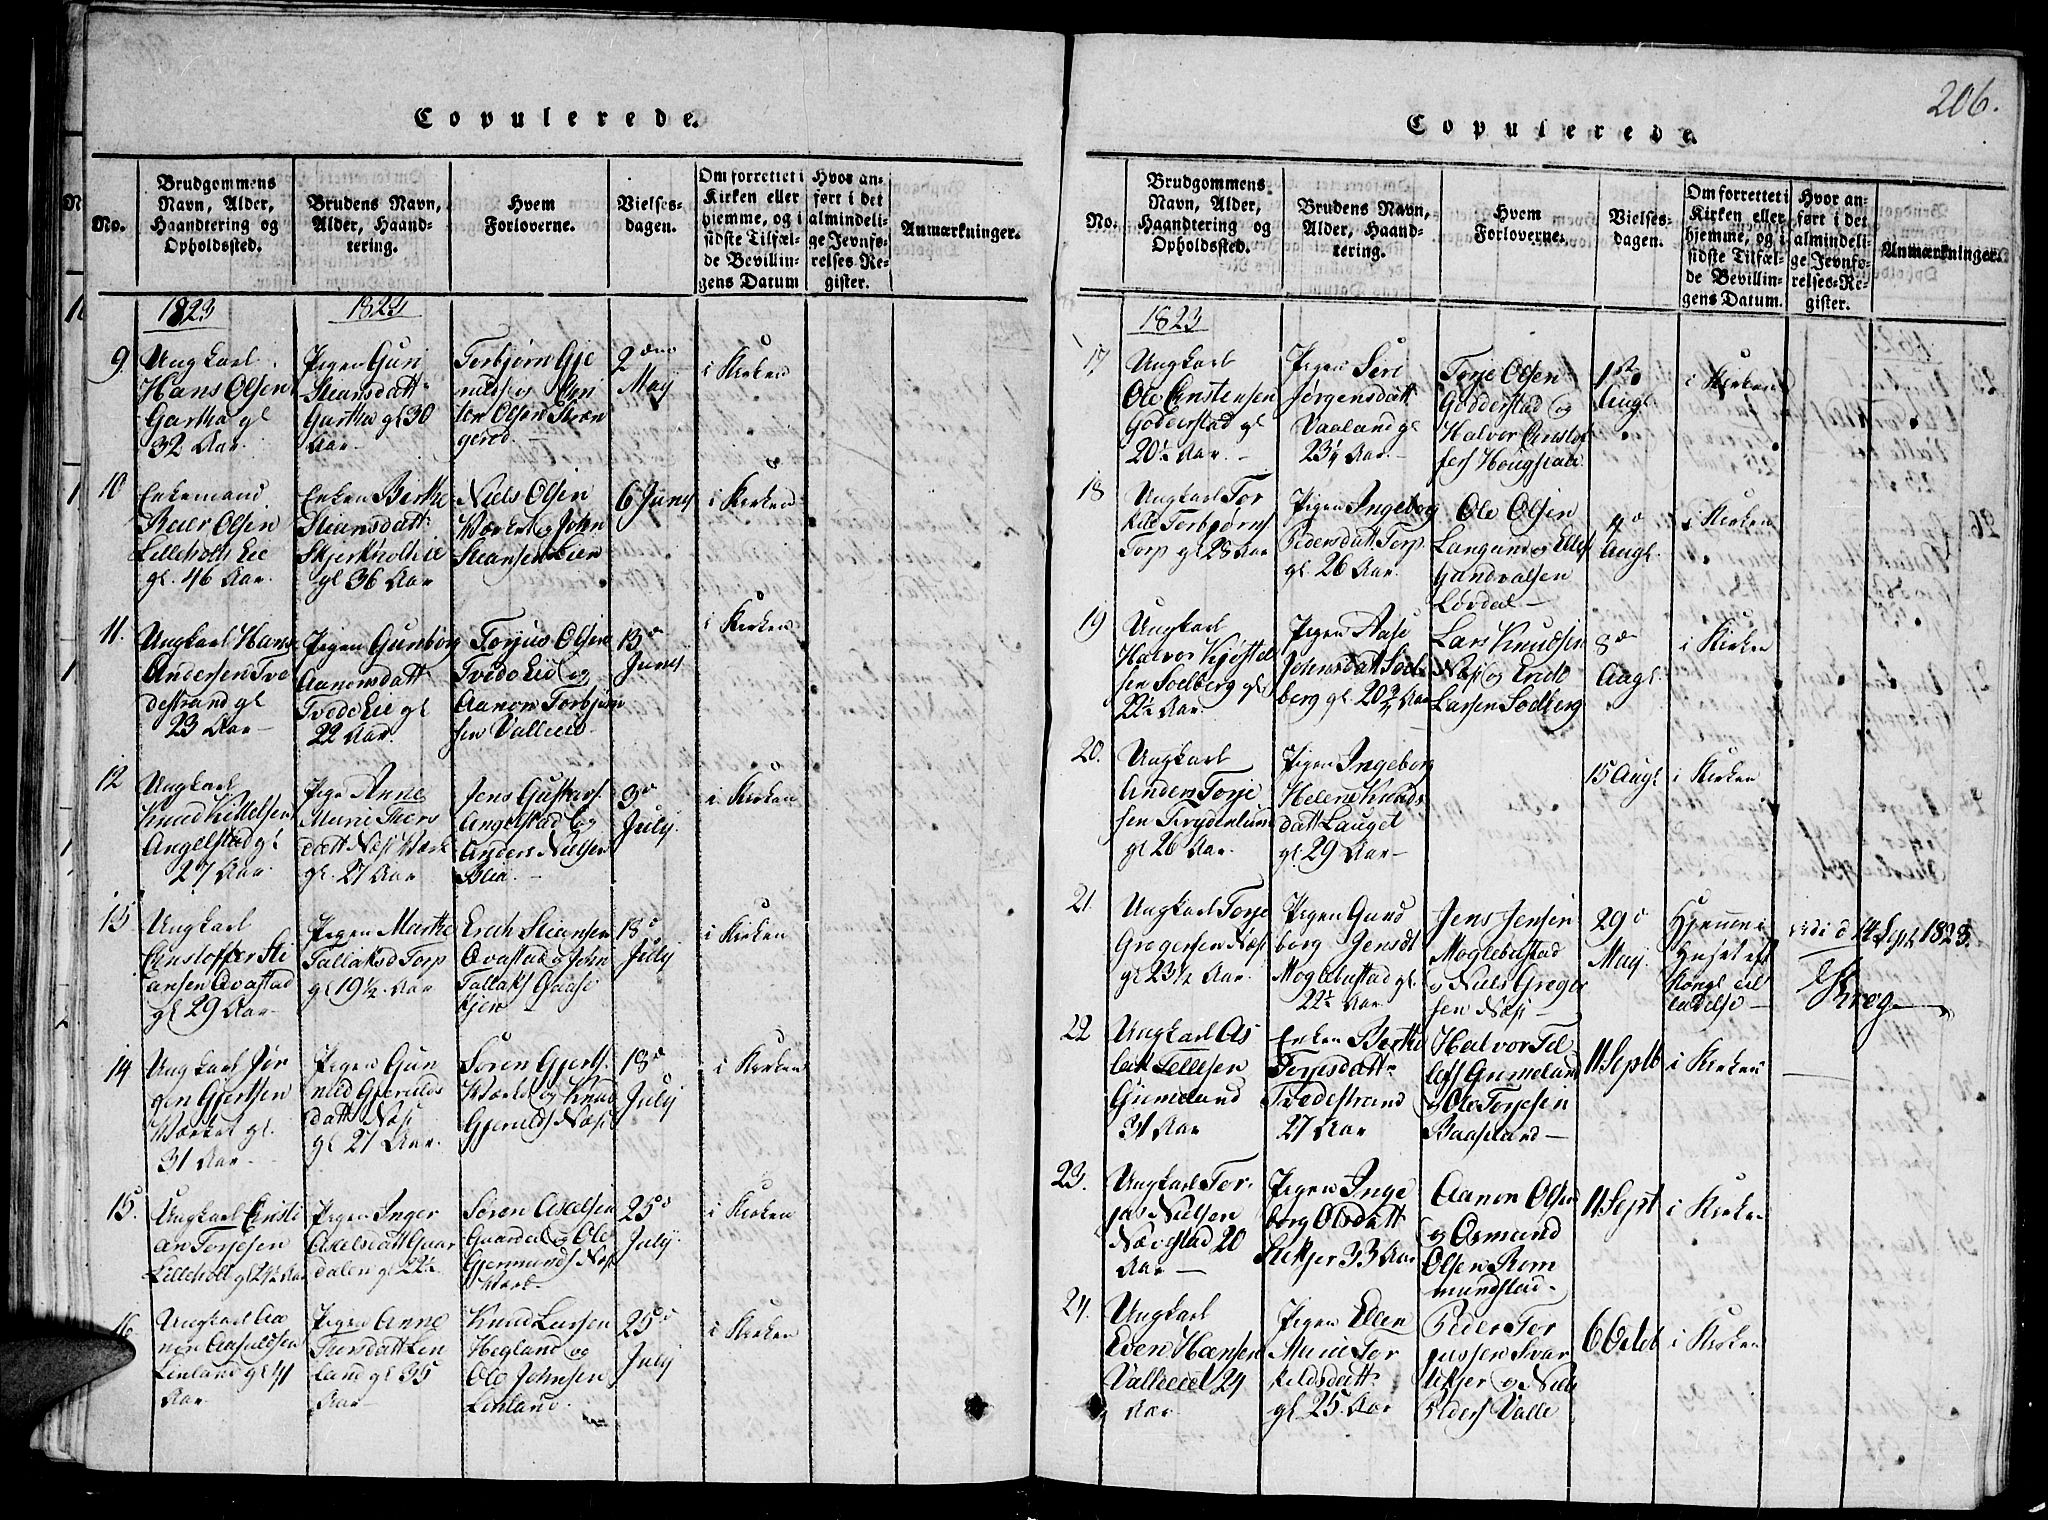 206.
Copulerede.
No.
Brudgommens Navn, Alder, Haandtering og Opholdssted.
Brudens Navn, Alder, Haandtering.
Hvem Forloverne.
Vielsesdagen.
Om forrettet i Kirken eller hjemme, og i sidste Tilfælde Bevillingens Datum
Hvor anført i det almindelige Jevnførelses-Register.
Anmærkninger.
1823
1823
9.
Ungkarl
Hans Olsen
Gartha gl
32 Aar
Pigen Guri
Steansdatt
Gartha gl 30
Aar
Torbjørn Gje
Olsen
gerod
2den
Maij
i Kirken
10
Enkemand
Reier Olsen
Lilleholth Eie
gl. 46 Aar.
Enken Berthe
Steansdatt
Skjerkholt Eie
gl 36 Aar
Niels Olsen
Værket og John
Steansen Lien
6 Junij
i Kirken
11.
Ungkarl Hans
Andersen Tve
destrand gl
23 Aar
Pigen Gunborg
Aanonsdatt
Tvede Eie gl
22 Aar.
Torjus Olsen
Tvede Eie og
Aanon Torbjørn
sen Valleeie
13de
Junij
i Kirken
12
Ungkarl
Knud Kittelsen
Angelstad gl
27 Aar.
Pige Anne
Marie Thers
datt Næs Værk
gl. 27 Aar
Jens Gustavs
Angelstad og
Anders Nielsen
Blea
3de
July
i Kirken
13
Ungkarl
Cristoffer Sti
ansen Qvastad
gl 29 Aar
Pigen Marthe
Tallaksd Torp
gl 19½ Aar
Erich Steansen
Qvastad og John
Tallaks Gaase
kjen
18de
July
i Kirken
14
Ungkarl Jør
gen Gjertsen
Værket gl.
31 Aar
Pigen Gun
nild Gjerulds
datt Næs
gl 27 Aar.
Søren Gjerts
Værket og Knud
Gjerulds Næs
18de
July
i Kirken
15.
Ungkarl Cristi
an Torjesen
Lilleholt gl 24½ Aar
Pigen Inger
Axelsdatt Gaar
dalen gl 22½
Søren Axelsen
Gaardal og Ole
Gjermunds Næs
Værk
25de
July
i Kirken
16
Ungkarl Aa
non
Linland gl 41
Aar
Pigen Anne
Tersdatt Lin
land gl 35
Aar
Knud Larsen
Hegland og
Ole Johnsen
Linland.
25de
July
i Kirken
Copulerede.
No.
Brudgommens Navn, Alder, Haandtering og Opholdssted.
Brudens Navn, Alder, Haandtering.
Hvem Forloverne.
Vielsesdagen.
Om forrettet i Kirken eller hjemme, og i sidste Tilfælde Bevillingens Datum.
Hvor anført i det almindelige Jevnførelses-Register.
Anmærkninger.
1823
17
Ungkarl
Ole Cristensen
Godderstad gl
20½ Aar.
Pigen Siri
Jørgensdatt
Vaaland gl
23¼ Aar.
Torje Olsen
Godderstad og
Halvor Cristof
fers
1st
Augl
i Kirken
18
Ungkarl Tor
kild Torbjørns
Torp gl 28 Aar
Pigen Ingebog
Pedersdatt Torp
gl. 26 Aar.
Ole Olsen
Langand og Ellef
Løvdal
4de
Augl.
i Kirken
19
Ungkarl
Halvor Kjøstel
sen Soelberg gl
22½ Aar.
Pigen Aase
Johnsdatt Soel
berg gl. 20¾ Aar
Lars Knudsen
Næs og Erich
Larsen Soelberg
8de
Augl.
i Kirken
20.
Ungkarl
Anders Torje
sen Frydenlund
gl 26 Aar.
Pigen Ingeborg
Helene Knuds
datt Lauget
gl. 29 Aar
15 Augl
i Kirken
21.
Ungkarl Torje
Gregersen Næs
gl 23½ Aar.
Pigen Gund
borg Jensdt
Moglebustad gl.
22½ Aar
Jens Jensen
Moglebustad
og Niels Greger
sen Næs
29de
Maij.
Hjemme i
Huset eft
Kongl til
ladelse
14 Sept 1823.
Krog
22
Ungkarl As
lak Tellefsen
Gumeland
31 Aar
Enken Berthe
Torjesdatt
Tvedestrand
27 Aar
Halvor Tel
lefs Gumeland
og Ole Torjesen
Baasland
11 Septb
i Kirken
23.
Ungkarl Tor
jus Nielsen
Nævestad 20
Aar
Pigen Inge
borg Olsdatt
Stikjer 33 Aar
Aanon Olsen
og Osmund
Olsen Rom
mundstad
11 Sept
i Kirken
24.
Ungkarl
Even Hansen
Valleeiet 24
Aar
Pigen Ellen
Marie Tor
kildsdatt
gl 25. Aar
Peder Tor
jussen Svar
tikjer og Niels
Peders Valle
6 Octob
i Kirken